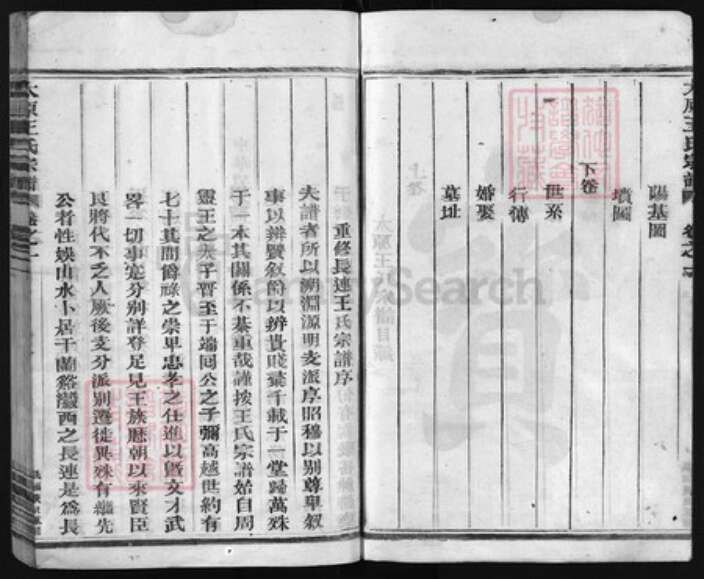 太原王氏宗譜
陽基圖
墳圖
下卷
世系
行傳
婚娶
墓址
重修長連王氏宗譜序
夫譜者所以溯淵源明支派序昭穆以別尊卑敘
事以辨賢敘爵以辨貴賤彙千載于一堂歸萬殊
于一本其關係不綦重哉謹按王氏宗譜始自周
靈王之太子晋至于端回公之子彌高越世約有
七十其間爵祿之崇卑忠孝之仕進以曁文才武
畧一切事寔分別詳登足見王族歷朝以來賢臣
良將代不乏人厥後支分派別遷徙異殊有繼先
公者性娛山水卜居于蘭谿瀫西之長連是為長
太原王氏宗譜 卷之一
FamilySearch